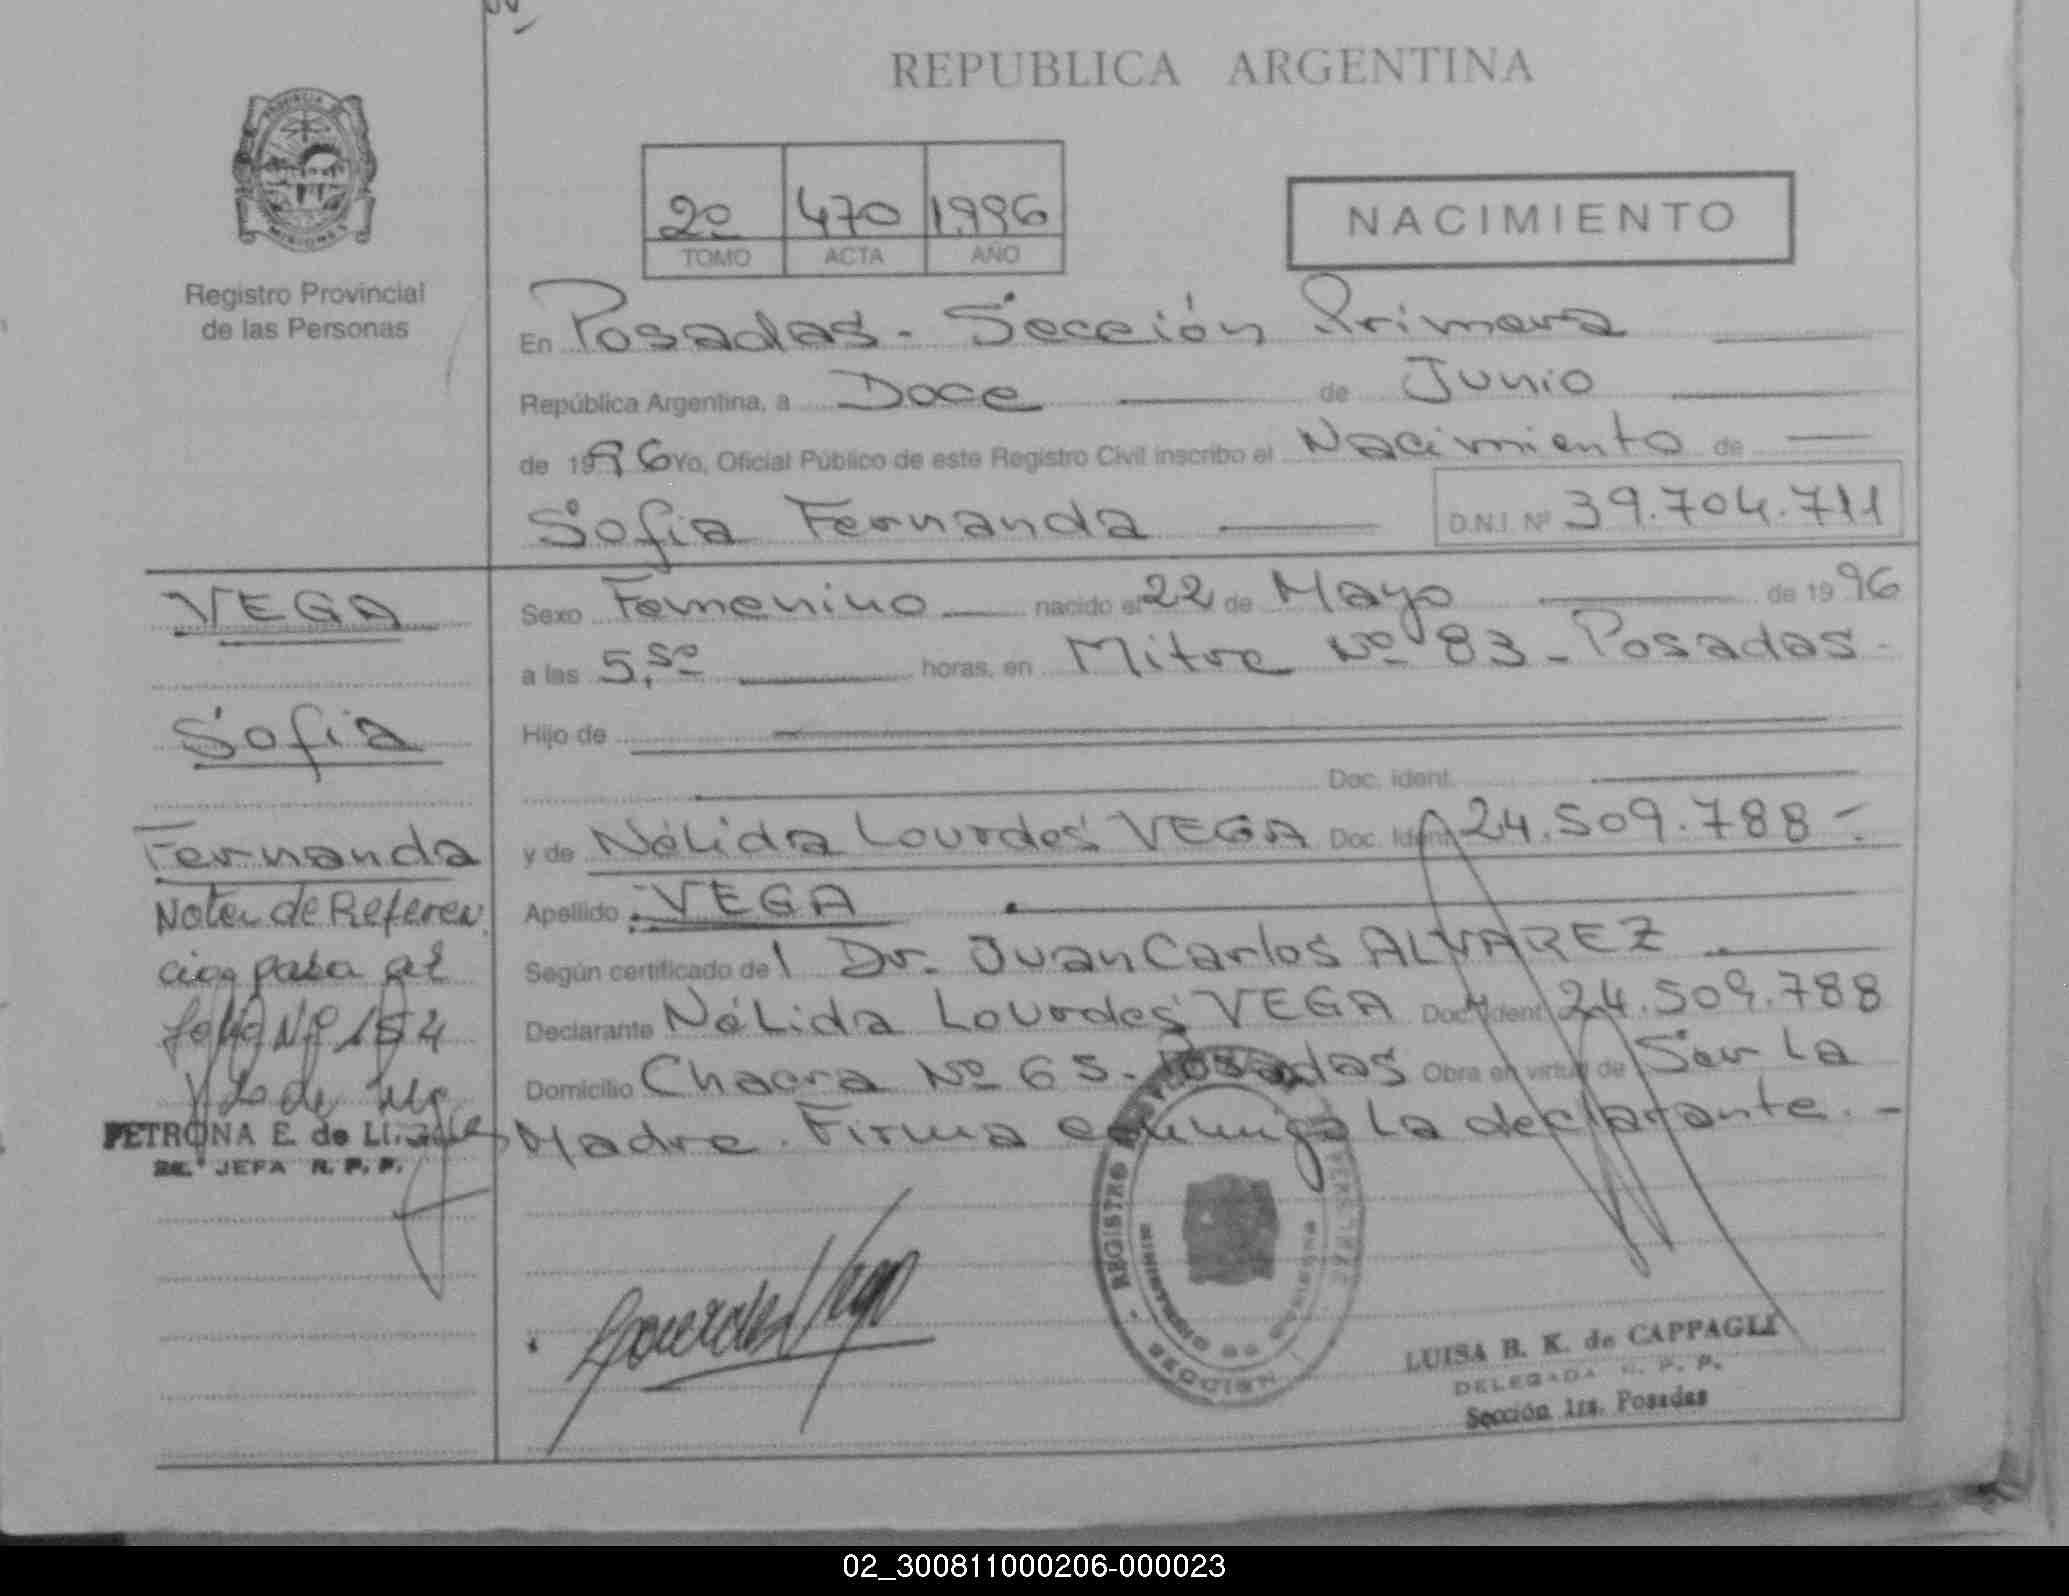 REPUBLICA ARGENTINA
PROVINCIA
MISIONES
Registro Provincial
de las Personas
2º 470 1996
TOMO ACTA AÑO
NACIMIENTO
En Posadas - Sección Primera
República Argentina, a Doce de Junio
de 1996 Yo, Oficial Público de este Registro Civil inscribo el Nacimiento de
Sofia Fernanda D.N.I. Nº 39.704.711
VEGA
Sofia
Fernanda
Nota de Referen
cia pasa al
folio Nº 154
PETRONA E. de
JEFA R. P. P.
Sexo Femenino nacido el 22 de Mayo de 1996
a las 5,50 horas, en Mitre Nº 83 - Posadas -
Hijo de
Doc. ident.
y de Nélida Lourdes VEGA Doc. Ident. 24.509.788 -
Apellido VEGA
Según certificado del Dr. Juan Carlos ALVAREZ
Declarante Nélida Lourdes VEGA Doc. Ident. 24.509.788
Domicilio Chacra Nº 65 - Posadas Obra en virtud de Ser La
Madre. Firma conmigo La declarante. -
Lourdes Vega
REGISTRO
MISIONES
LUISA B. K. de CAPPAGLI
DELEGADA R. P. P.
Sección 1ra. Posadas
02_300811000206-000023